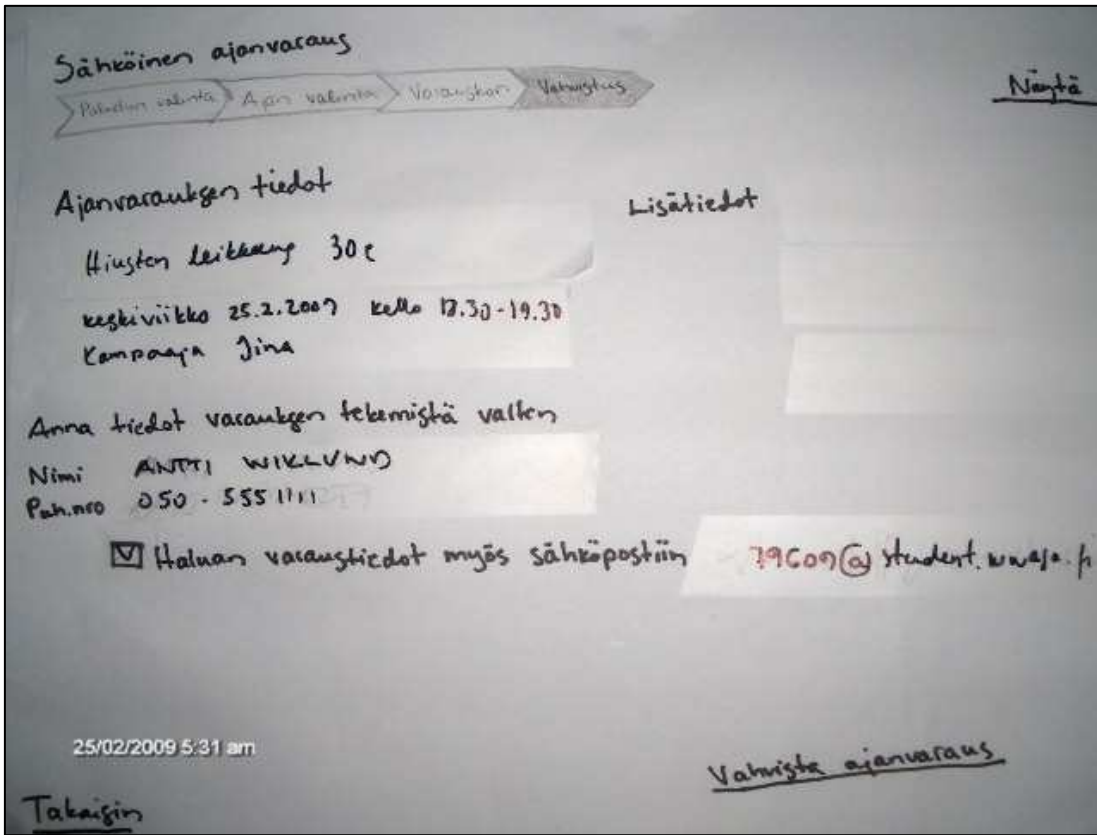 Sähköinen ajanvaraus
Palvelun valinta Ajan valinta Varauksen Vahvistus
Näytä
Ajanvarauksen tiedot
Lisätiedot
Hiusten leikkaus 30€
keskiviikko 25.2.2009 kello 18.30-19.30
Kampaaja Jina
Anna tiedot varauksen tekemistä varten
Nimi ANTTI WIKLUND
Puh.nro 050-5551111
Haluan varaustiedot myös sähköpostiin 79609@student.uwasa.fi
25/02/2009 5:31 am
Vahvista ajanvaraus
Takaisin